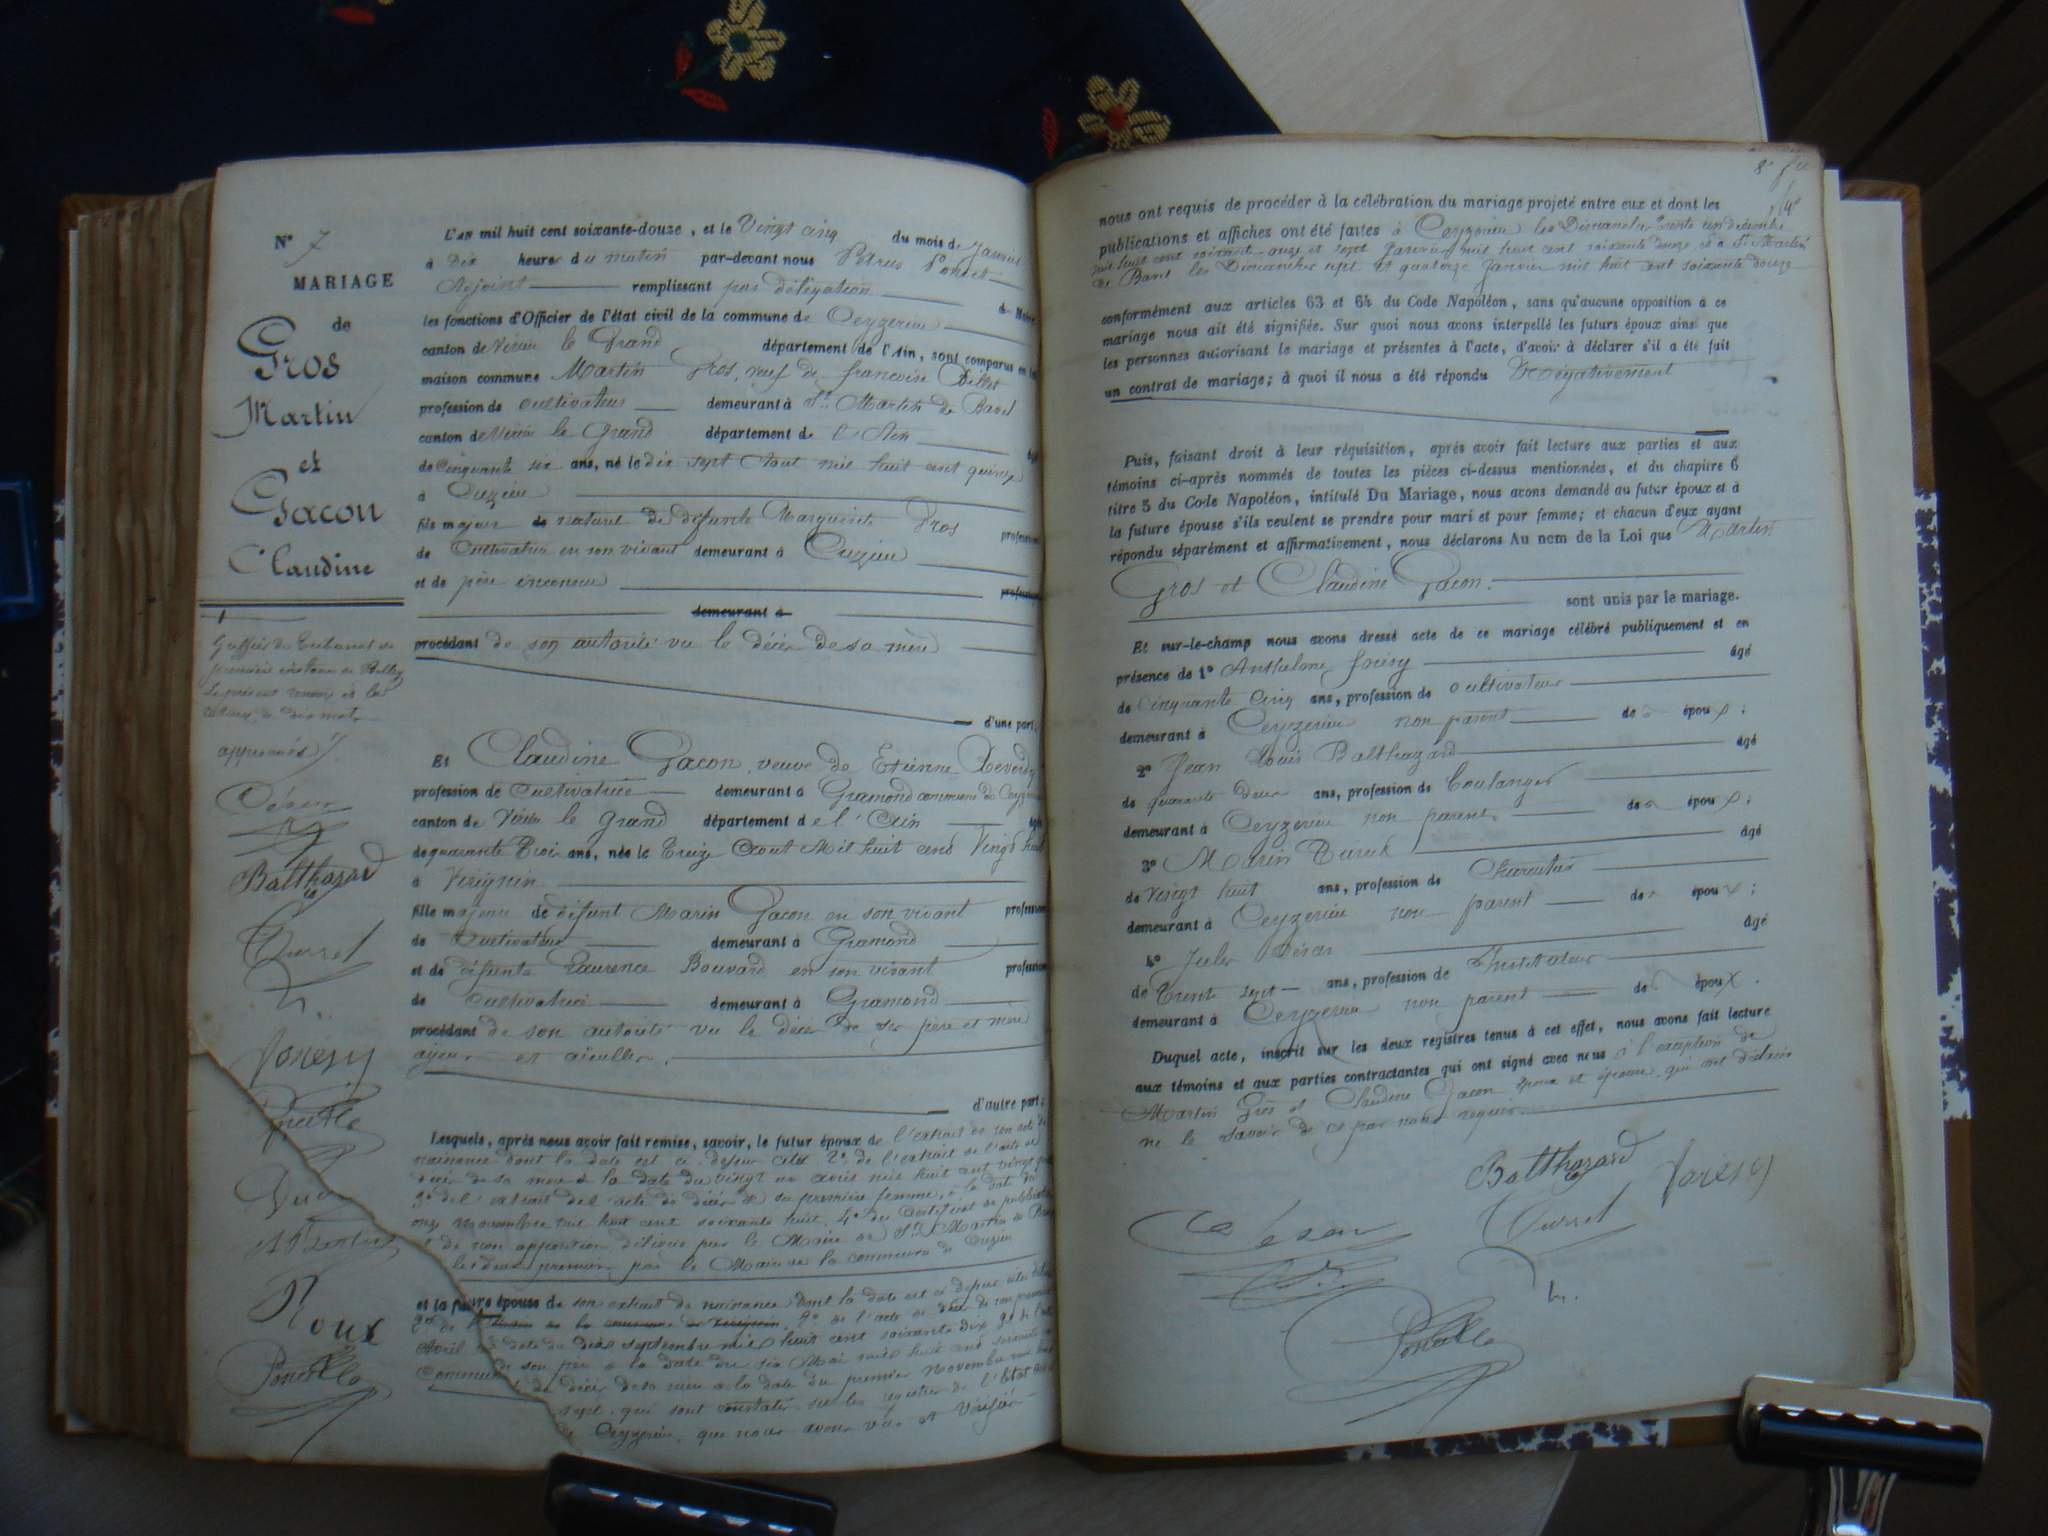 N° 7
MARIAGE
de
Gros
Martin
et
Gacon
Claudine
Greffier du Tribunal de
première instance de Belley
Le présent renvoi et la
rature de dix mots
approuvés
Balthazard
Turrel
Poncet
Roux
Poncet
L'AN mil huit cent soixante-douze, et le Vingt cinq du mois de Janvier
à Dix heures du matin par-devant nous Pétrus Poncet
Adjoint remplissant par délégation de Maire
les fonctions d'Officier de l'état civil de la commune de Ceyzerieu
canton de Virieu le Grand département de l'Ain, sont comparus en la
maison commune Martin Gros, veuf de françoise Billet
profession de cultivateur demeurant à St. Martin de Bavel
canton de Virieu le Grand département de l'Ain âgé
de Cinquante six ans, né le dix sept Aout mil huit cent quinze
à Cuzieu
fils majeur de naturel de défunte Marguerite Gros profession
de Cultivatrice en son vivant demeurant à Cuzieu
et de père inconnu profession
demeurant à
procédant de son autorité vu le décès de sa mère
d'une part.
Et Claudine Gacon, veuve de Etienne Reverdy
profession de Cultivatrice demeurant à Gramond commune de Ceyzerieu
canton de Virieu le Grand département de l'Ain âgée
de quarante Trois ans, née le Treize Aout Mil huit cent Vingt huit
à Virignin
fille majeure de défunt Marin Gacon en son vivant profession
de Cultivateur demeurant à Gramond
et de défunte Laurence Bouvard en son vivant profession
de Cultivatrice demeurant à Gramond
procédant de son autorité vu le décès de ses père et mère
ayeux et aïeulles.
d'autre part;
Lesquels, après nous avoir fait remise, savoir, le futur époux de l'extrait de son acte de
naissance dont la date est ci-dessus citée 2° de l'extrait de l'acte de
décès de sa mère à la date du vingt un avril mil huit cent vingt
3° de l'extrait de l'acte de décès de sa première femme, à la date du
onze Novembre mil huit cent soixante huit, 4° du Certificat de publication
et de non opposition délivré par le Maire de St. Martin de Bavel
les deux premiers par le Maire de la commune de Cuzieu
et la future épouse de son extrait de naissance dont la date est ci dessus citée
2° de l'acte de décès de son premier
mari à la date du dix septembre mil huit cent soixante dix 3° de l'acte
de son père à la date du six Mai mil huit cent soixante
de décès de sa mère à la date du premier Novembre mil huit
sept, qui sont constatés sur les registres de l'Etat civil
de Ceyzerieu, que nous avons vus et vérifiés
nous ont requis de procéder à la célébration du mariage projeté entre eux et dont les
publications et affiches ont été faites à Ceyzerieu les Dimanches Trente un décembre
mil huit cent soixante onze et sept Janvier mil huit cent soixante douze et à St. Martin
de Bavel les Dimanches sept et quatorze Janvier mil huit cent soixante douze
conformément aux articles 63 et 64 du Code Napoléon, sans qu'aucune opposition à ce
mariage nous ait été signifiée. Sur quoi nous avons interpellé les futurs époux ainsi que
les personnes autorisant le mariage et présentes à l'acte, d'avoir à déclarer s'il a été fait
un contrat de mariage; à quoi il nous a été répondu Négativement
Puis, faisant droit à leur réquisition, après avoir fait lecture aux parties et aux
témoins ci-après nommés de toutes les pièces ci-dessus mentionnées, et du chapitre 6
titre 5 du Code Napoléon, intitulé Du Mariage, nous avons demandé au futur époux et à
la future épouse s'ils veulent se prendre pour mari et pour femme; et chacun d'eux ayant
répondu séparément et affirmativement, nous déclarons Au nom de la Loi que Martin
Gros et Claudine Gacon.
sont unis par le mariage.
Et sur-le-champ nous avons dressé acte de ce mariage célébré publiquement et en
présence de 1° Anthelme Jorisy âgé
de Cinquante Cinq ans, profession de cultivateur
demeurant à Ceyzerieu non parent des époux;
2° Jean Louis Balthazard âgé
de quarante deux ans, profession de boulanger
demeurant à Ceyzerieu non parent des époux;
3° Marin Turrel âgé
de Vingt huit ans, profession de Charcutier
demeurant à Ceyzerieu non parent des époux;
4° Jules âgé
de Trente sept ans, profession de Instituteur
demeurant à Ceyzerieu non parent des époux.
Duquel acte, inscrit sur les deux registres tenus à cet effet, nous avons fait lecture
aux témoins et aux parties contractantes qui ont signé avec nous à l'exception de
Martin Gros et Claudine Gacon époux et épouse, qui ont déclaré
ne le savoir de ce par nous requis.
Balthazard
Turrel
Poncet